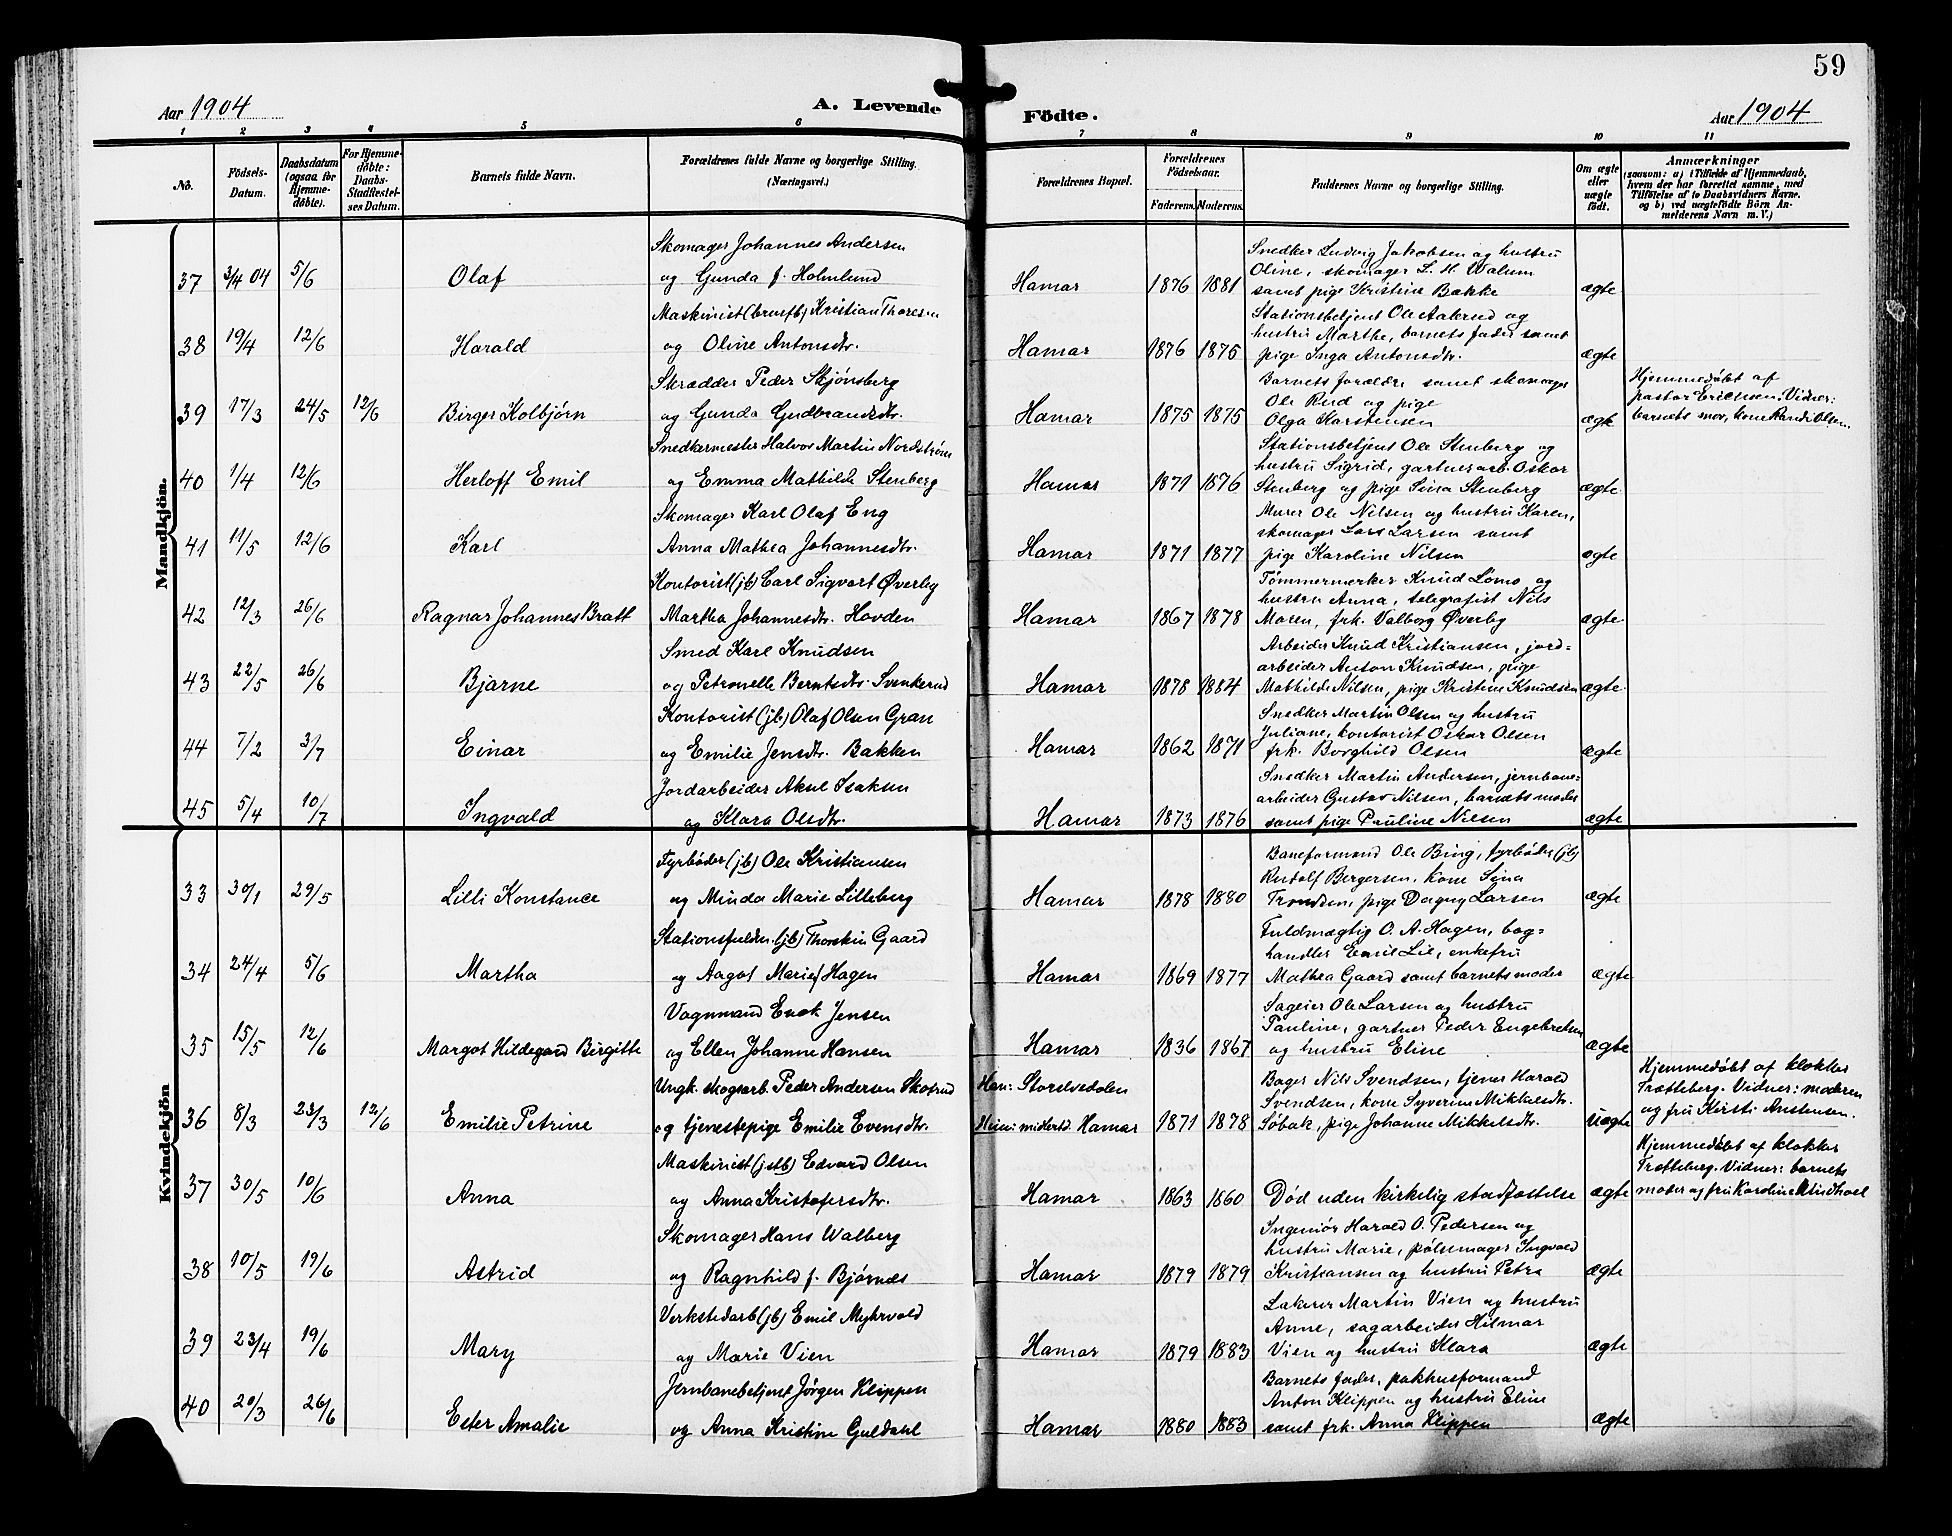 59
Aar 1904
A. Levende
Födte.
Aar 1904
1 2 3 4 5 6 7 8 9 10 11
No.
Födsels-Datum.
Daabsdatum (ogsaa for Hjemmedöbte).
For Hjemmedöbte: Daabs-Stadfæstelses Datum.
Barnets fulde Navn.
Forældrenes fulde Navne og borgerlige Stilling.
(Næringsvei.)
Forældrenes Bopæl.
Forældrenes Födselsaar.
Faderens. Moderens.
Faddernes Navne og borgerlige Stilling.
Om ægte eller uægte födt.
Anmærkninger
(saasom: a) i Tilfælde af Hjemmedaab,
hvem der har forrettet samme, med
Tilföielse af to Daabsvidners Navne.
og b) ved uægtefödte Börn Anmelderens Navn m. V.)
Mandkjön.
37 3/4 04 5/6 Olaf
Skomager Johannes Andersen
og Gunda f. Holmlund
Hamar 1876 1881
Snedker Ludvig Jakobsen og hustru
Oline, skomager L. H. Walum
samt pige Kristine Bakke
ægte
38 19/4 12/6 Harald
Maskinist (brusfb) Kristian Thoresen
og Oline Antonsdtr.
Hamar 1876 1875
Stationsbetjent Ole Aalerud og
hustru Marthe, barnets fader samt
pige Inga Antonsdtr.
ægte
39 17/3 24/5 12/6 Birger Kolbjörn
Skrædder Peder Skjönsberg
og Gunda Gudbrandsdtr.
Hamar 1875 1875
Barnets forældre samt skomager
Ole Rud og pige
Olga Karstensen
ægte
Hjemmedøbt af
pastor Erichsen. Vidner:
barnets mor, kone Randi Olsen.
40 1/4 12/6 Herloff Emil
Snedkermester Halvor Martin Nordstrøm
og Emma Mathilde Stenberg
Hamar 1871 1876
Stationsbetjent Ole Stenberg og
hustru Sigrid, gartnerarb. Oskar
Stenberg og pige Sina Stenberg
ægte
41 11/5 12/6 Karl
Skomager Karl Olaf Eng
Anna Mathea Johannesdtr.
Hamar 1871 1877
Murer Ole Nilsen og hustru Karen,
skomager Lars Larsen samt
pige Karoline Nilsen
ægte
42 12/3 26/6 Ragnar Johannes Bratt
Kontorist (jb) Carl Sigvart Øverby
Martha Johannesdtr. Hovden
Hamar 1867 1878
Tømmermerker Knud Lømo og
hustru Anna, telegrafist Nils
Moren, frk. Valborg Øverby
ægte
43 22/5 26/6 Bjarne
Smed Karl Knudsen
og Petronelle Berntsdtr. Svenkerud
Hamar 1878 1884
Arbeider Knud Kristiansen, jord=
arbeider Anton Knudsen, pige
Mathilde Nilsen, pige Kristine Knudsen
ægte
44 7/2 3/7 Einar
Kontorist (jb) Olaf Olsen Gran
og Emilie Jensdtr. Bakken
Hamar 1862 1871
Snedker Martin Olsen og hustru
Juliane, kontorist Oskar Olsen
frk. Borghild Olsen
ægte
45 5/4 10/7 Ingvald
Jordarbeider Aksel Isaksen
og Klara Olsdtr.
Hamar 1873 1876
Snedker Martin Andersen, jernbane=
arbeider Gustav Nilsen, barnets moder
samt pige Pauline Nilsen
ægte
Kvindekjön
33 30/1 29/5 Lilli Konstance
Fyrbøder (jb) Ole Kristiansen
og Minda Marie Lilleberg
Hamar 1878 1880
Baneformand Ole Bing, fyrbøder (jb)
Rudolf Bergersen, kone Sina
Trondsen, pige Dagny Larsen
ægte
34 24/4 5/6 Martha
Stationsfuldm. (jb) Thorstein Gaard
og Aagot Marie f. Hagen
Hamar 1869 1877
Fuldmægtig O. A. Hagen, bog=
handler Emil Lie, enkefru
Mathea Gaard samt barnets moder
ægte
35 15/5 12/6 Margot Hildegard Birgitte
Vognmand Enok Jensen
og Ellen Johanne Hansen
Hamar 1836 1867
Sageier Ole Larsen og hustru
Pauline, gartner Peder Engebretsen
og hustru Eline
ægte
36 8/3 23/3 12/6 Emilie Petrine
Ungk. skogsarb. Peder Andersen Skotrud
og tjenestepige Emilie Evensdtr.
Han: Storelvedalen
Hun: midlertd. Hamar 1871 1878
Bager Nils Svendsen, tjener Harald
Svendsen, kone Syverine Mikkelsdtr.
Søbak, pige Johanne Mikkelsdtr.
uægte
Hjemmedøbt af klokker
Trætteberg. Vidner: moderen
og fru Kirsti Anstensen.
37 30/5 10/6 Anna
Maskinist (jstb) Edvard Olsen
og Anna Kristofersdtr.
Hamar 1863 1860
Død uden kirkelig stadfæstelse
ægte
Hjemmedøbt af klokker
Trætteberg. Vidner: barnets
moder og fru Karoline Mindhoel
38 10/5 19/6 Astrid
Skomager Hans Walberg
og Ragnhild f. Bjørnæs
Hamar 1879 1879
Ingeniør Harald O. Pedersen og
hustru Marie, pølsemager Ingvald
Kristiansen og hustru Petra
ægte
39 23/4 19/6 Mary
Verkstedarb (jb) Emil Myhrvold
og Marie Vien
Hamar 1879 1883
Lakerer Martin Vien og hustru
Anne, sagarbeider Hilmar
Vien og hustru Klara
ægte
40 20/3 26/6 Ester Amalie
Jernbanebetjent Jørgen Klippen
og Anna Kristine Guldahl
Hamar 1880 1883
Barnets fader, pakhusformand
Anton Klippen og hustru Eline
samt frk. Anna Klippen
ægte